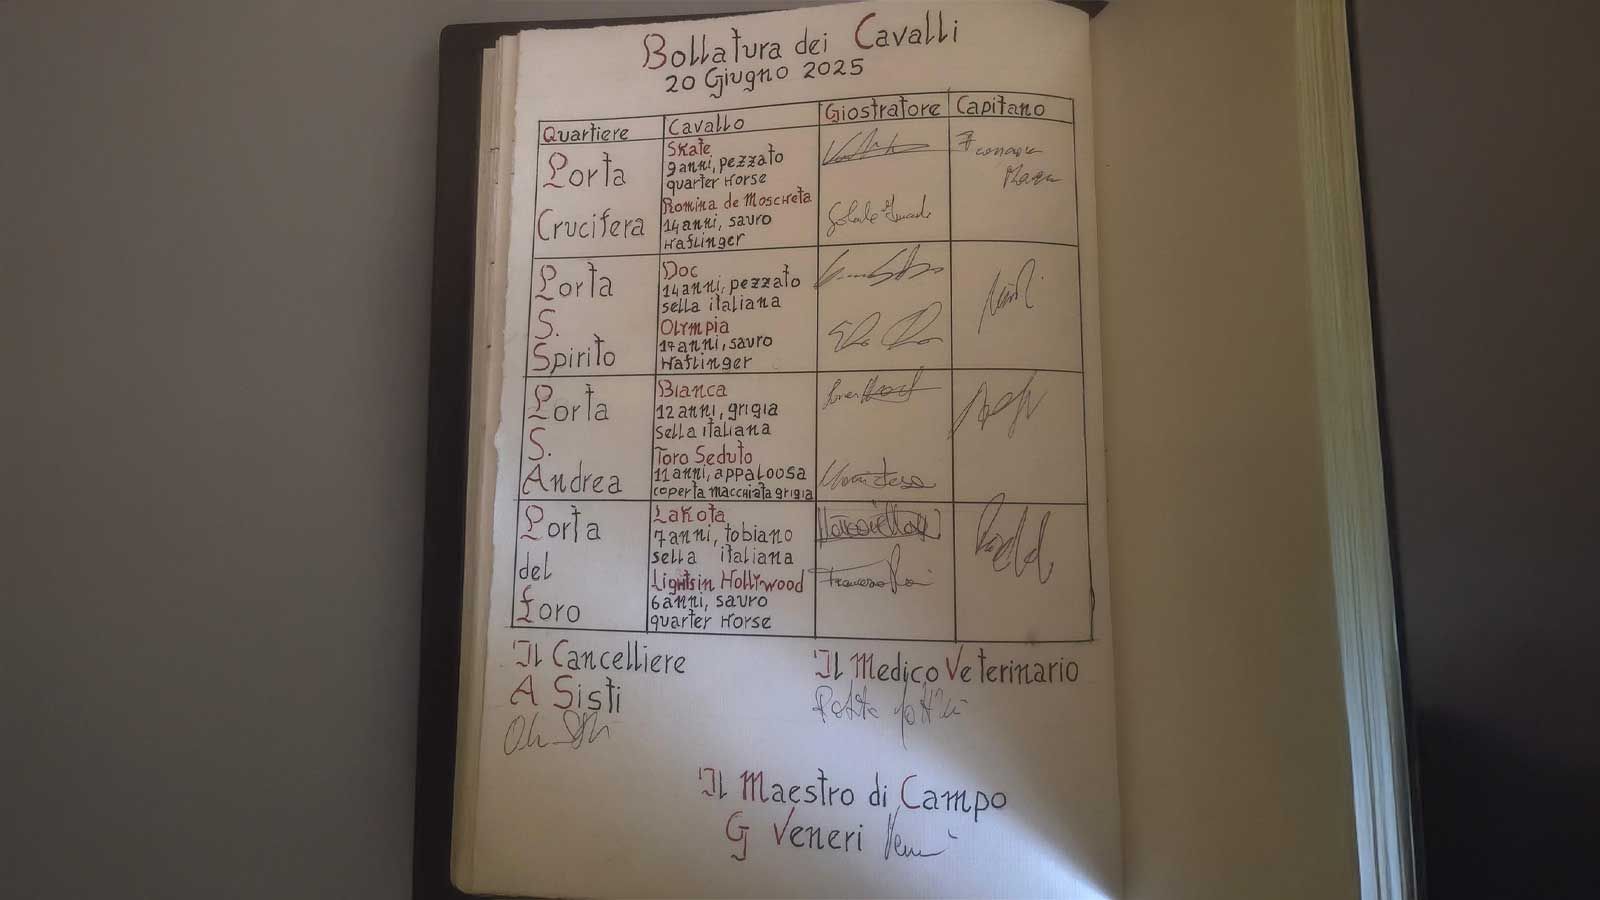 Bollatura dei Cavalli
20 Giugno 2025
Quartiere Cavallo Giostratore Capitano
Porta Crucifera
Skate
9 anni, pezzato
quarter Horse
Romina de Moscheta
14 anni, sauro
Haflinger
Porta S. Spirito
Doc
14 anni, pezzato
sella italiana
Olympia
17 anni, sauro
Haflinger
Porta S. Andrea
Bianca
12 anni, grigia
sella italiana
Toro Seduto
11 anni, appaloosa
coperta macchiata grigia
Porta del Foro
Lakota
7 anni, tobiano
sella italiana
Lights in Hollywood
6 anni, sauro
quarter Horse
Il Cancelliere
A Sisti
Il Medico Veterinario
Il Maestro di Campo
G Veneri